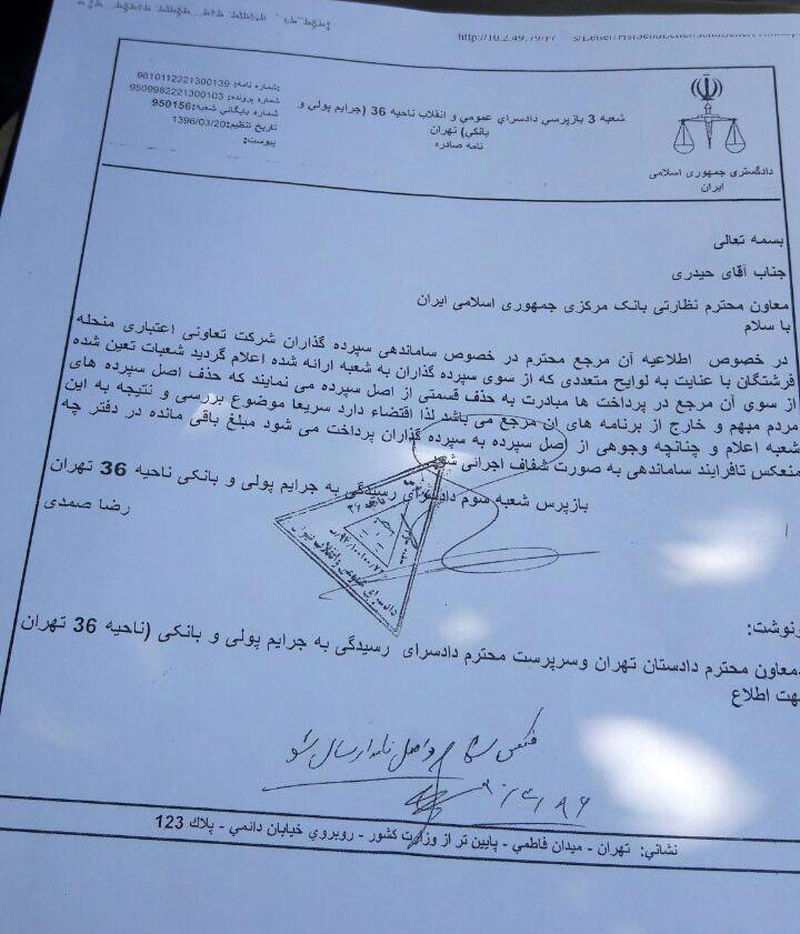 http://10.2.49.79/
شماره نامه: 9610112221300139
شماره پرونده: 9509982221300103
شماره بایگانی شعبه: 950156
تاریخ تنظیم: 1396/03/20
پیوست:
شعبه 3 بازپرسي دادسراي عمومي و انقلاب ناحیه 36 (جرایم پولي و
بانکي) تهران
نامه صادره
دادگستری جمهوری اسلامی
ایران
بسمه تعالی
جناب آقای حیدری
معاون محترم نظارتی بانک مرکزی جمهوری اسلامی ایران
با سلام
در خصوص اطلاعیه آن مرجع محترم در خصوص ساماندهی سپرده گذاران شرکت تعاونی اعتباری منحله
فرشتگان با عنایت به لوایح متعددی که از سوی سپرده گذاران به شعبه ارائه شده اعلام گردید شعبات تعین شده
از سوی آن مرجع در پرداخت ها مبادرت به حذف قسمتی از اصل سپرده می نمایند که حذف اصل سپرده های
مردم مبهم و خارج از برنامه های آن مرجع می باشد لذا اقتضاء دارد سریعا موضوع بررسی و نتیجه به این
شعبه اعلام و چنانچه وجوهی از اصل سپرده به سپرده گذاران پرداخت می شود مبلغ باقی مانده در دفتر چه
منعکس تافرایند ساماندهی به صورت شفاف اجرائی شود
بازپرس شعبه سوم دادسرای رسیدگی به جرایم پولی و بانکی ناحیه 36 تهران
رضا صمدی
رونوشت:
معاون محترم دادستان تهران وسرپرست محترم دادسرای رسیدگی به جرایم پولی و بانکی (ناحیه 36 تهران
جهت اطلاع
فکس و اصل نامه ارسال شو
نشاني: تهران - میدان فاطمي - پایین تر از وزارت کشور - روبروي خیابان دائمي - پلاك 123